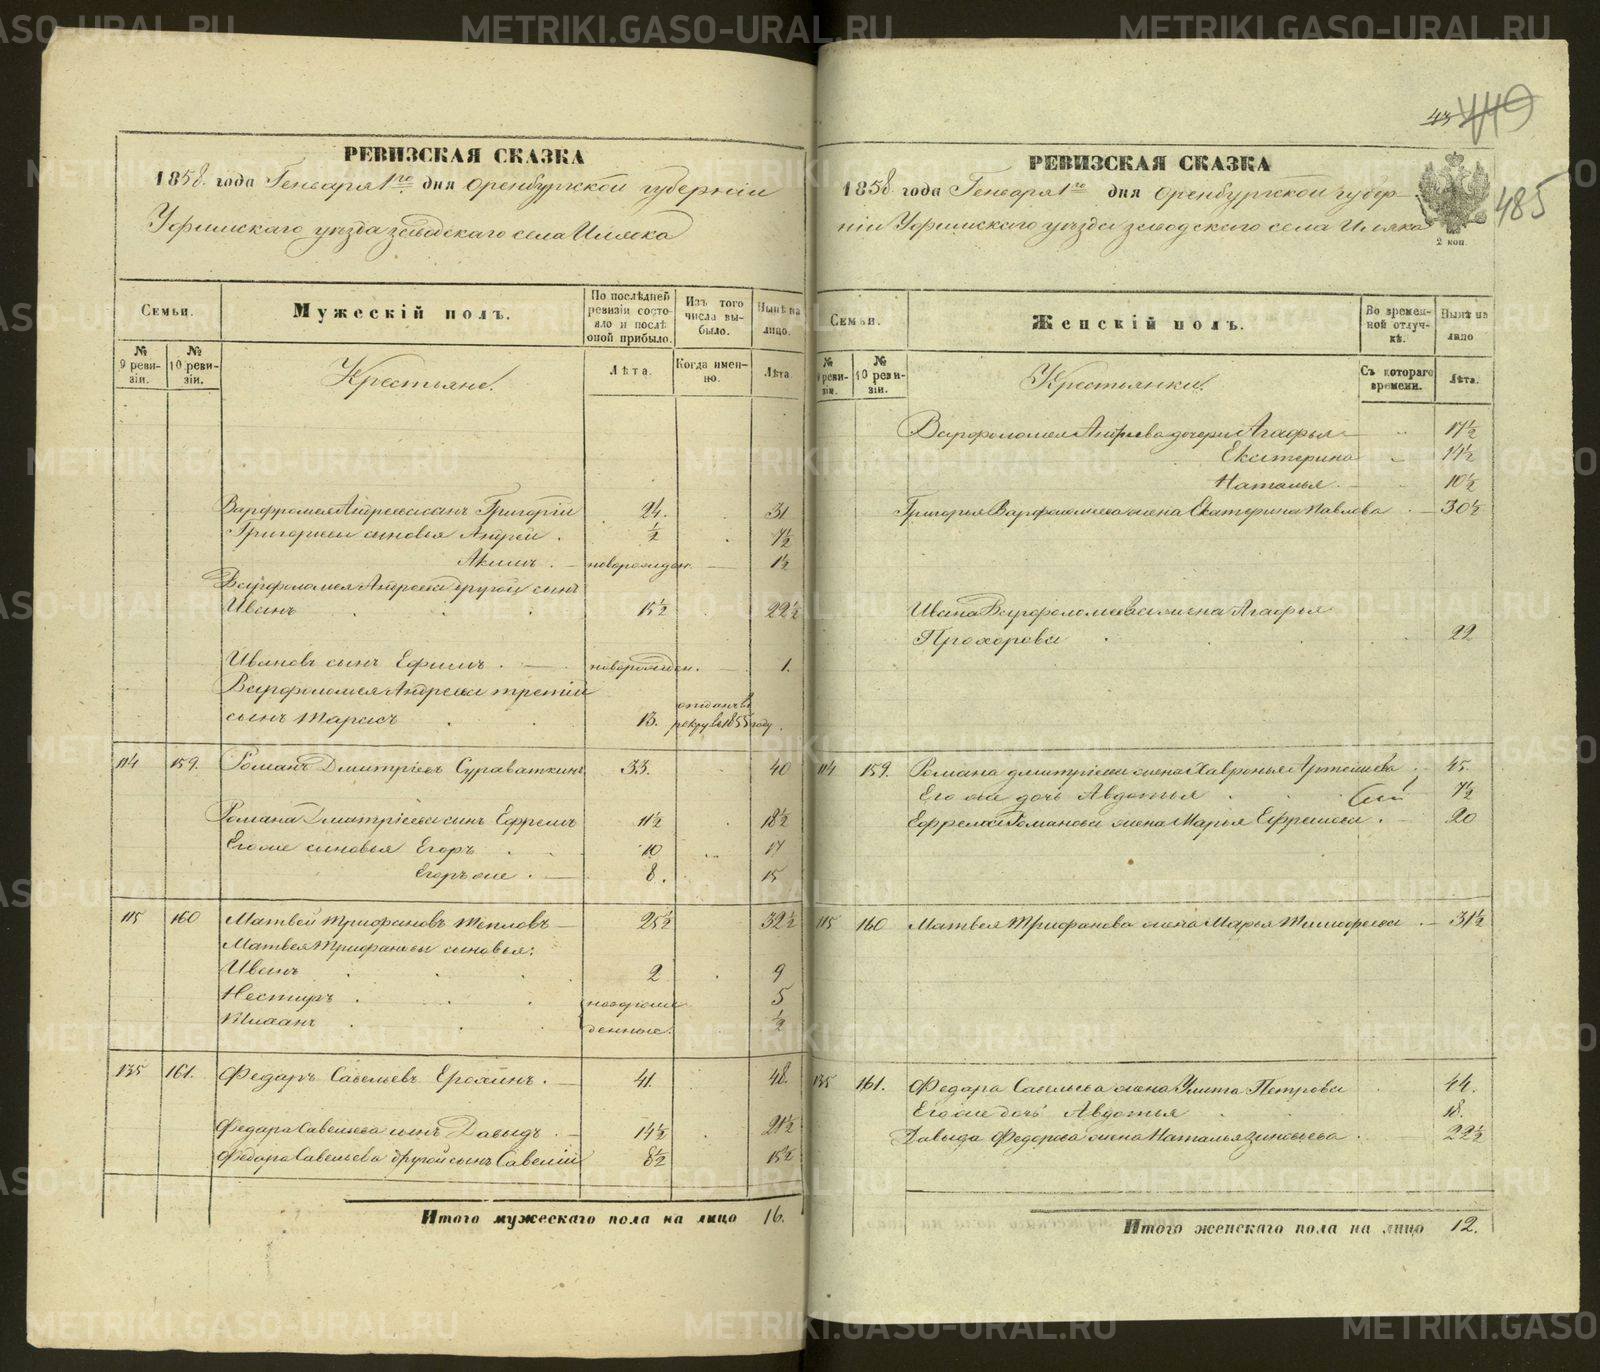 РЕВИЗСКАЯ СКАЗКА
1858. года Генваря 1го дня Оренбургской губерніи
Уфимскаго уезда заводскаго села Илека
Семьи.
Мужескій полъ.
По послѣдней ревизіи состояло и послѣ оной прибыло.
Изъ того числа выбыло.
Нынѣ на лицо.
№ 9 ревизіи.
№ 10 ревизіи.
Крестьяне.
Лѣта.
Когда именно.
Лѣта.
Варфоломея Андреева сынъ Григорій 24. 31
Григорьевы сыновья Андрей . ½ 7½
Акимъ . новорожден. 1½
Варфоломея Андреева другой сынъ
Иванъ 15½ 22½
Ивановъ сынъ Ефимъ . новорожден. 1.
Варфоломея Андреева третій
сынъ Тарасъ 13. отданъ въ рекру въ 1855 году
114 159. Романъ Дмитріевъ Сураваткинъ 33. 40
Романа Дмитріева сынъ Ефремъ 11½ 18½
Его же сыновья Егоръ 10 17
Егоръ же . 8. 15
115 160 Матвей Трифановъ Тепловъ 25½ 32½
Матвея Трифанова сыновья:
Иванъ 2 9
Нестиръ . новорож 5
Тиханъ денные. ½
135 161. Федаръ Савельевъ Ерохинъ . 41. 48.
Федара Савельева сынъ Давыдъ . 14½ 21½
Федара Савельева другой сынъ Савелій 8½ 15½
Итого мужескаго пола на лицо 16.
43 419
485
РЕВИЗСКАЯ СКАЗКА
1858 года Генваря 1го дня Оренбургской губер-
ніи Уфимскаго уезда заводскаго села Илека
2 коп.
Семьи.
Женскій полъ.
Во временной отлучкѣ.
Нынѣ на лицо
№ 9 ревизіи.
№ 10 ревизіи.
Крестьянки.
Съ котораго времени.
Лѣта.
Варфоломея Андреева дочери Агафья 17½
Екатерина 14½
Наталья . 10½
Григорья Варфоломеева жена Екатерина Павлова 30½
Ивана Варфоломеева жена Агафья
Прохорова 22
114 159. Романа Дмитріева жена Хавронья Артемьева 45.
Его же дочь Авдотья 7½
Ефрема Романова жена Марья Ефремова . 20
115 160 Матвея Трифанова жена Марья Тимофеева 31½
135 161. Федара Савельева жена Улита Петрова 44.
Его же дочь Авдотья 18.
Давыда Федорова жена Наталья Зиновьева . 22½
Итого женскаго пола на лицо 12.
METRIKI.GASO-URAL.RU